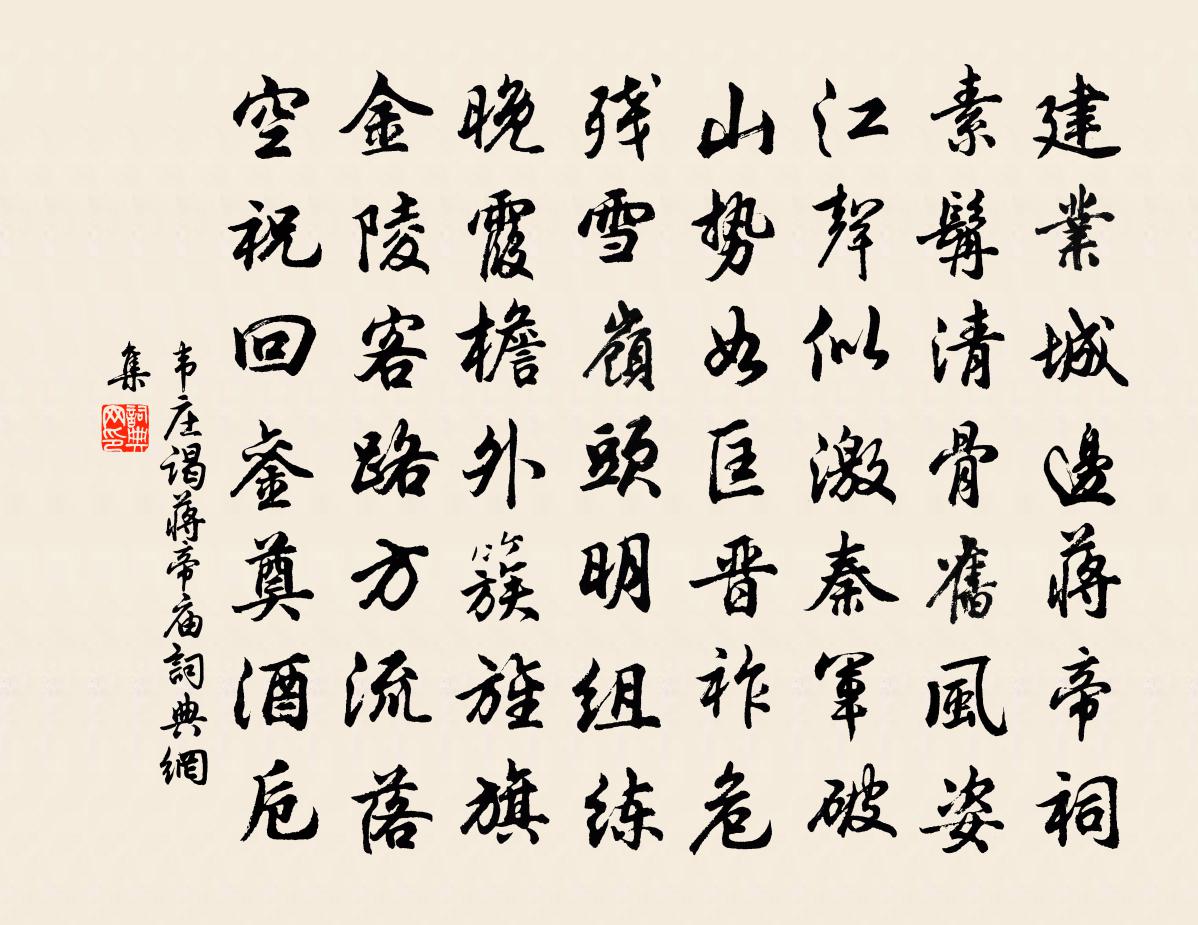 建業城邊蔣帝祠
素髯清骨舊風姿
江聲似激秦軍破
山势如匡晋祚危
残雪嶺頭明组练
晚霞檐外簇旌旗
金陵客路方流落
空祝回銮奠酒卮
韦庄谒蔣帝庙詞典網
集
詞典
网印